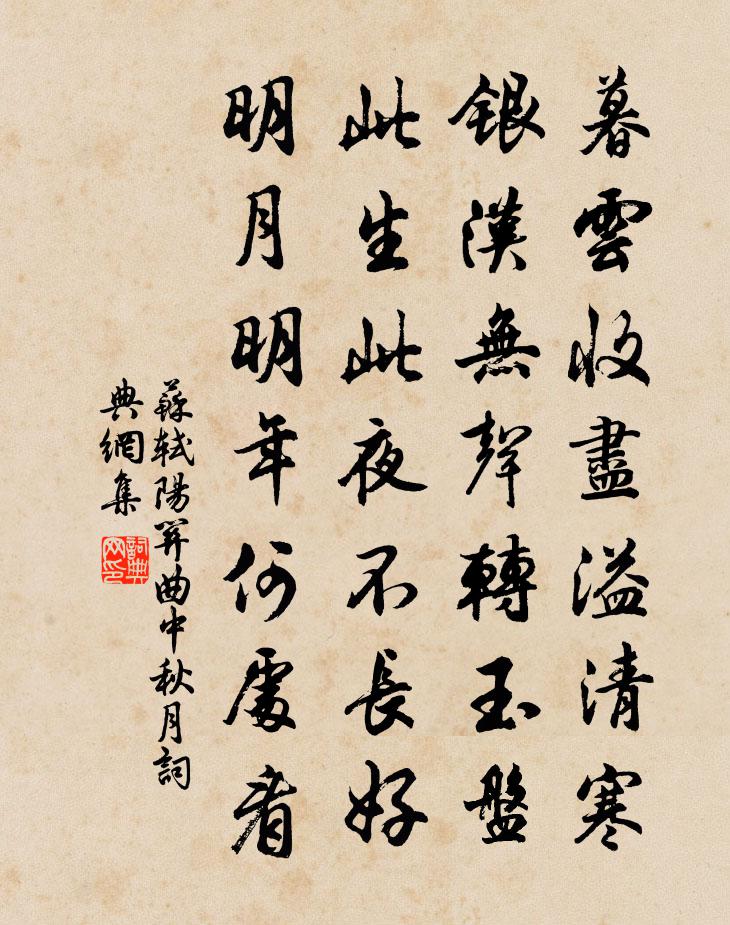 暮雲收盡溢清寒
銀漢無聲轉玉盤
此生此夜不長好
明月明年何處看
蘇軾陽關曲中秋月詞
典網集
詞典網印